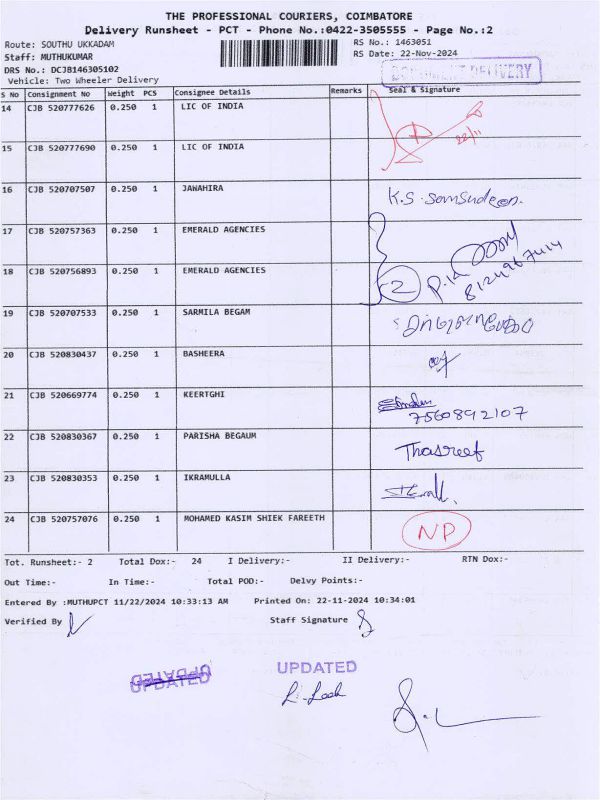 THE PROFESSIONAL COURIERS, COIMBATORE
Delivery Runsheet - PCT - Phone No.:0422-3505555 - Page No.:2
Route: SOUTHU UKKADAM
RS No.: 1463051
Staff: MUTHUKUMAR
RS Date: 22-Nov-2024
DRS No.: DCJB146305102
Vehicle: Two Wheeler Delivery
DOCUMENT DELIVERY
S No Consignment No Weight PCS Consignee Details Remarks Seal & Signature
14 CJB 520777626 0.250 1 LIC OF INDIA
22/11
15 CJB 520777690 0.250 1 LIC OF INDIA
16 CJB 520707507 0.250 1 JAWAHIRA K.S. Samsudeen.
17 CJB 520757363 0.250 1 EMERALD AGENCIES
18 CJB 520756893 0.250 1 EMERALD AGENCIES 2
19 CJB 520707533 0.250 1 SARMILA BEGAM
20 CJB 520830437 0.250 1 BASHEERA
21 CJB 520669774 0.250 1 KEERTGHI
7560892107
22 CJB 520830367 0.250 1 PARISHA BEGAUM Thasreef
23 CJB 520830353 0.250 1 IKRAMULLA
24 CJB 520757076 0.250 1 MOHAMED KASIM SHIEK FAREETH NP
Tot. Runsheet:- 2 Total Dox:- 24 I Delivery:- II Delivery:- RTN Dox:-
Out Time:- In Time:- Total POD:- Delvy Points:-
Entered By :MUTHUPCT 11/22/2024 10:33:13 AM Printed On: 22-11-2024 10:34:01
Verified By Staff Signature
UPDATED
UPDATED